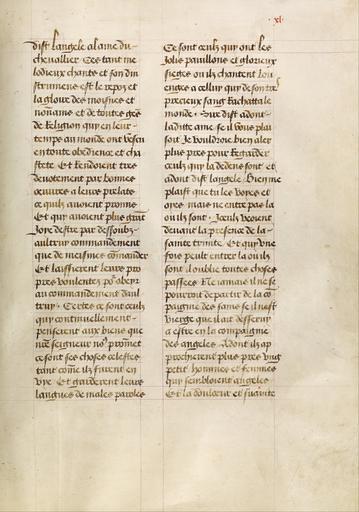 .xl.
dist langele a lame du
chevallier Ces tant me
lodieux chants et son din
strumens est le repoz et
la gloire des moisnes et
nonains et de toutes gens
de Religion quy en leur
temps au monde ont vescu
en toute obedience et cha
stete Et Rendoient tres
devotement par bonnes
oeuvres a leurs prelats
ce quilz avoient promis
Et quy avoient plus grant
Joye destre par dessoubz
aultruy commandement
que de mesismes commander
Et laisserent leurs pro
pres voulentez pour obeyr
au commandement daul
truy Certes ce sont ceulx
quy continuellement
penserent aux biens que
nostre seigneur nous promet
ce sont ses choses celestes
tant comme ilz furent en
vye Et garderent leurs
langues de males paroles
Ce sont ceulx quy ont les
Jolis pavillons et glorieux
sieges ou ilz chantent lou
enges a celluy quy de son tres
precieux sang Rachatta le
monde Sire dist adont
ladite ame se il vous plai
soit Je vouldroie bien aler
plus pres pour Regarder
ceulx quy la dedens sont et
adont dist langele Bien me
plaist que tu les voyes et
oyes mais ne entre pas la
ou ilz sont Iceulx voient
devant la presence de la
sainte trinite Et quy une
fois peult entrer la ou ilz
sont il oublie toutes choses
passees Ne jamais il ne se
pourroit departir de la co
paignie des sains se il nest
vierge que il ait desservy
a estre en la compaignie
des angeles Adont ilz ap
procherent plus pres virent
petis hommes et femmes
quy sembloient angeles
Et la doulceur et suavite